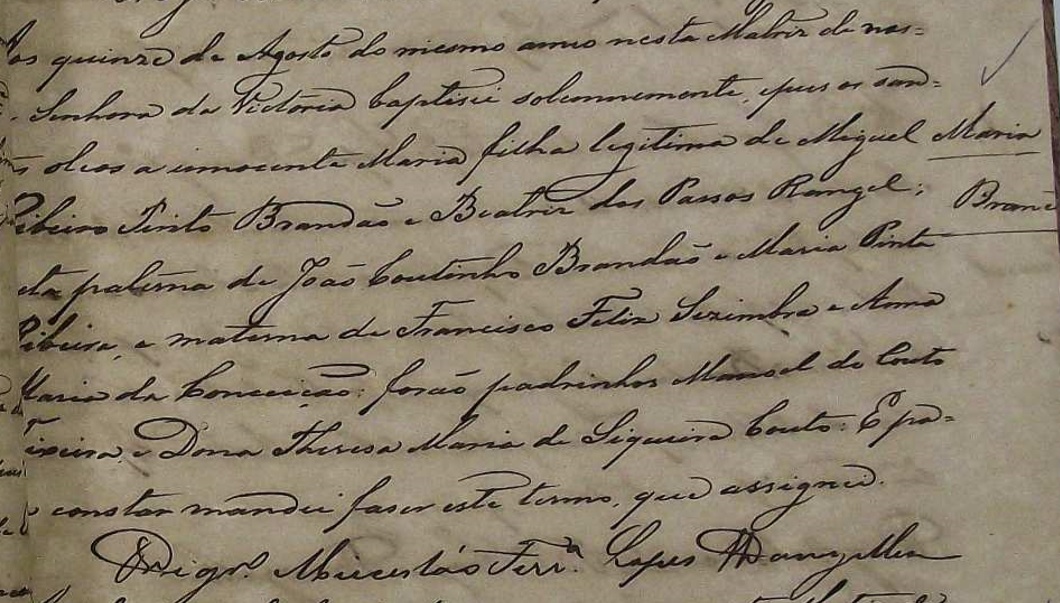 Aos quinze de Agosto do mesmo anno nesta Matriz de nos=
Senhora da Victoria baptisei solennemente, e pus os san=
oleos a innocente Maria filha legitima de Miguel
Maria
Ribeiro Pinto Brandão e Beatriz dos Passos Rangel;
Brand
eta paterna de João Coutinho Brandão e Maria Pinta
Ribeira, e materna de Francisco Felix Sezimbra e Anna
Maria da Conceição: forão padrinhos Manoel do Couto
Teixeira, e Dona Theresa Maria de Siqueira Couto: E pa=
constar mandei faser este termo, que assignei.
Lopes